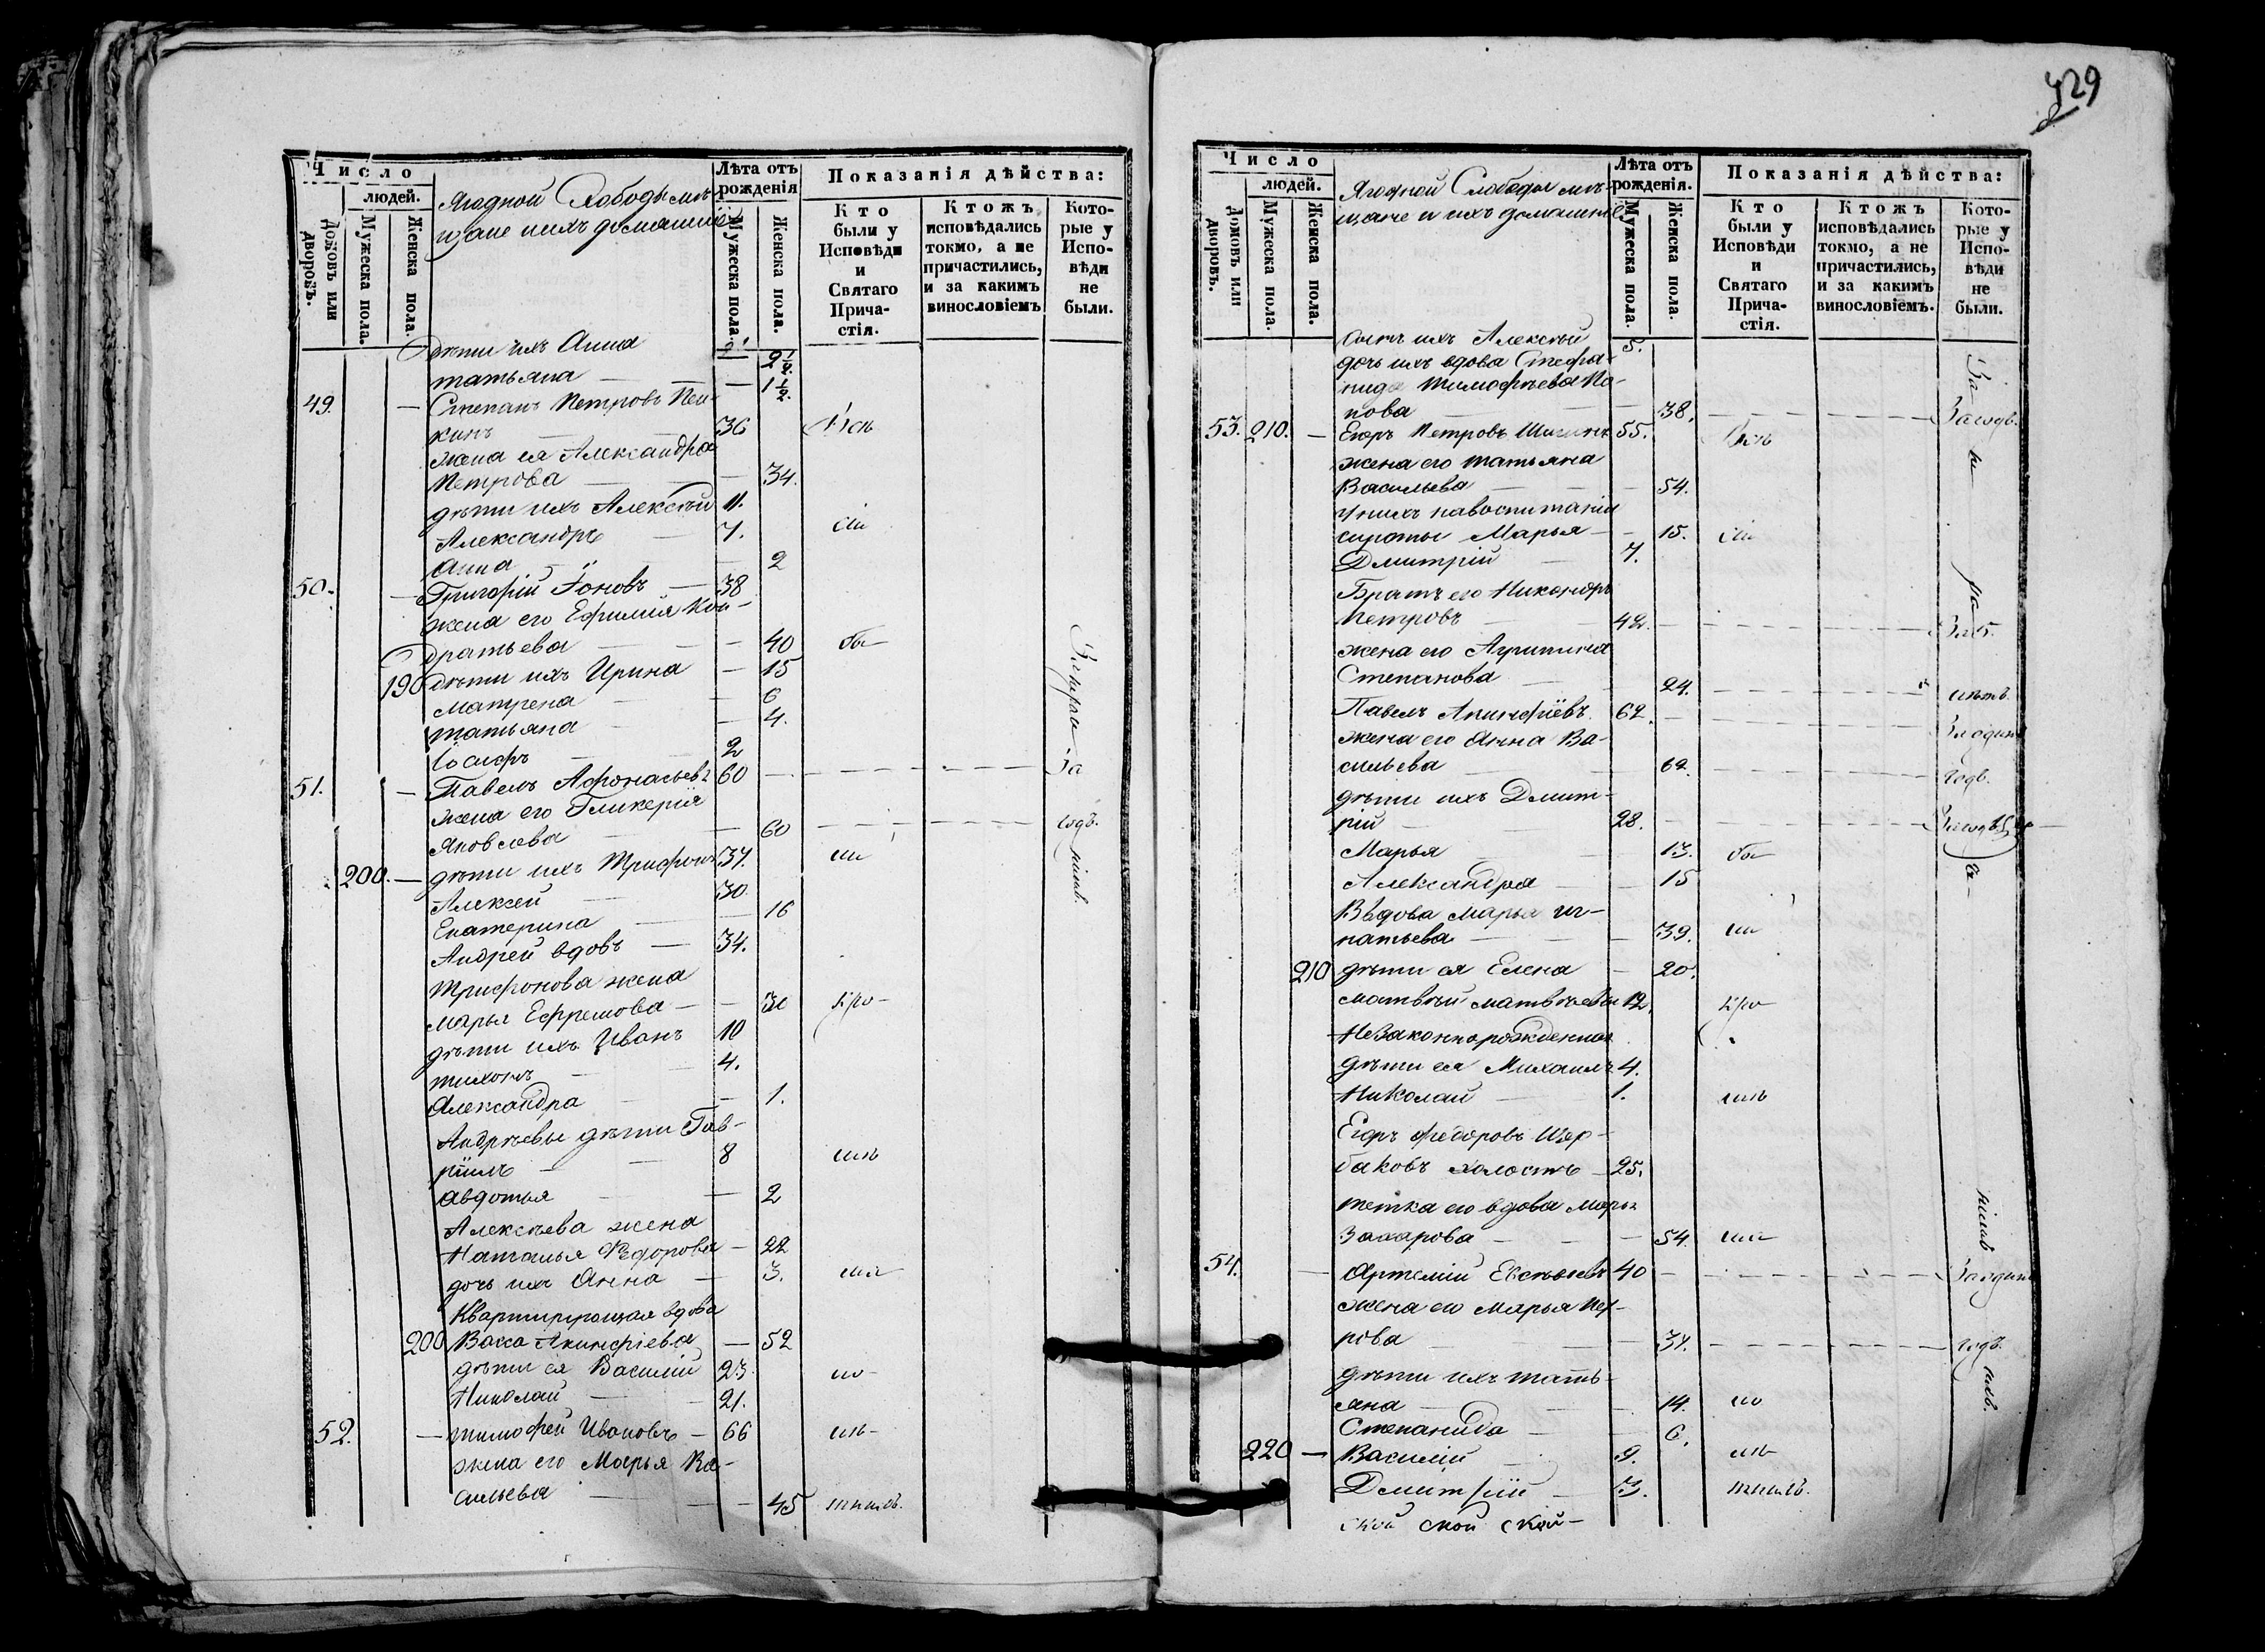 429
Число
людей.
Домовъ или дворовъ.
Мужеска пола.
Женска пола.
Ягодной Слободы мѣ-
щане и ихъ домашніе
Лѣта отъ рожденія
Мужеска пола.
Женска пола.
Показанія дѣйства:
Кто были у Исповѣди и Святаго Прича-стія.
Ктожъ исповѣдались токмо, а не причастились, и за какимъ винословіемъ
Кото-рые у Испо-вѣди не были.
дѣти ихъ Анна 2½
Татьяна — — 1½
49. — Степанъ Петровъ Пен-
кинъ 36
жена ея Александра
Петрова — 34.
дѣти ихъ Алексѣй 11.
Александръ — 7. сіи
Анна — 2
50. — Григорій Іоновъ — 38
жена его Ефимія Кон-
дратьева — 40 бы
190 дѣти ихъ Ирина — 15
Матрена — 6
Татьяна — 4.
Іосифъ — 2
51. — Павелъ Афонасьевъ 60 — — — — за
жена его Гликерія
Яковлева — 60 — — — — годъ.
200. — дѣти ихъ Трифонъ 37.
Алексѣй — 30
Екатерина — 16
Андрей вдовъ — 34.
Трифонова жена
Марья Ефремова — 30
дѣти ихъ Иванъ 10
Тихонъ — 4.
Александра — 1.
Андрѣевы дѣти Гав-
ріилъ — 8
Авдотья — 2
Алексѣева жена
Наталья Ѳедорова — 22
дочь ихъ Анна — 3.
Квартирующая вдова
200 Васса Акинфіева — 52
дѣти ея Василій 23
Николай — 21.
52. — Тимофей Ивановъ — 66
жена его Марья Ва-
сильева — 45
Число
людей.
Домовъ или дворовъ.
Мужеска пола.
Женска пола.
Ягодной Слободы мѣ-
щане и ихъ домашніе
Лѣта отъ рожденія.
Мужеска пола.
Женска пола.
Показанія дѣйства:
Кто были у Исповѣди и Святаго Прича-стія.
Ктожъ исповѣдались токмо, а не причастились, и за какимъ винословіемъ.
Кото-рые у Испо-вѣди не были.
сынъ ихъ Алексѣй 5.
дочь ихъ вдова Стефа-
нида Тимофѣева По-
пова 38. — — — За годъ.
53. 210. — Егоръ Петровъ 55.
жена его Татьяна
Васильева — 54.
У нихъ на воспитаніи
сироты Марья — 15. сіи
Дмитрій — 7.
Братъ его Никаноръ
Петровъ — 42. — — —
жена его Агрипина
Степанова 24. — — —
Павелъ Акинфіевъ 62. — — —
жена его Анна Ва-
сильева 62. — — — годъ.
дѣти ихъ Дмит-
рій — 28. — — —
Марья — 13. бы
Александра — 15
Вдова Марья Иг-
натьева — 39.
210 дѣти ея Елена — 20.
Матвѣй Матвѣевъ 12.
Незаконнорожденныя
дѣти ея Михаилъ 4.
Николай — 1.
Егоръ Федоровъ Щер-
баковъ холостъ — 25.
тетка его вдова Марья
Захарова — 54.
54. — Артемій Евсѣевъ 40 — — —
жена его Марья Пет-
рова — 34. — — — годъ.
дѣти ихъ Тать-
яна — 14.
Степанида — 6.
220 — Василій — 9.
Дмитрій — 3.
ской ской ской